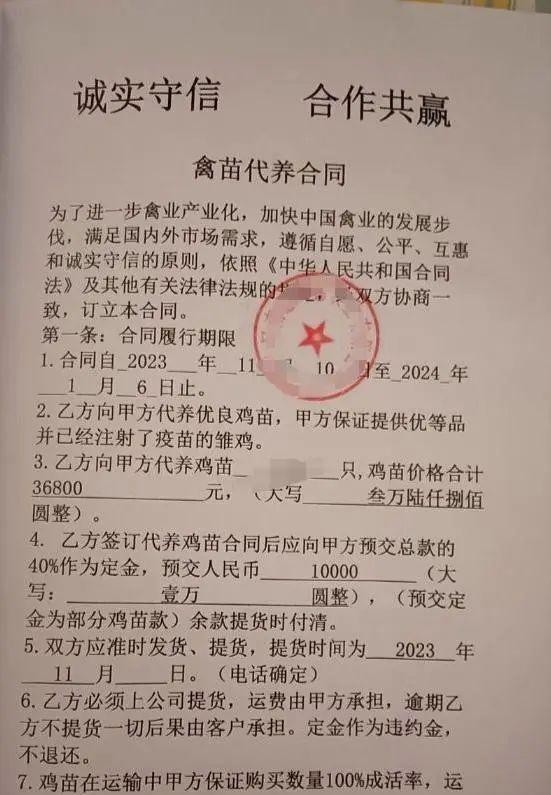 诚实守信 合作共赢
禽苗代养合同
为了进一步禽业产业化，加快中国禽业的发展步
伐，满足国内外市场需求，遵循自愿、公平、互惠
和诚实守信的原则，依照《中华人民共和国合同
法》及其他有关法律法规的 双方协商一
致，订立本合同。
第一条：合同履行期限
1.合同自_2023___年__11_ _10_ 日至_2024_年
___1__月__6_日止。
2.乙方向甲方代养优良鸡苗，甲方保证提供优等品
并已经注射了疫苗的雏鸡。
3.乙方向甲方代养鸡苗_ _只,鸡苗价格合计
36800__________元，（大写______叁万陆仟捌佰
圆整）。
4. 乙方签订代养鸡苗合同后应向甲方预交总款的
40%作为定金，预交人民币____10000_____（大
写：________壹万________圆整），（预交定
金为部分鸡苗款）余款提货时付清。
5.双方应准时发货、提货，提货时间为__2023__年
__11__月_____日。（电话确定）
6.乙方必须上公司提货，运费由甲方承担，逾期乙
方不提货一切后果由客户承担。定金作为违约金，
不退还。
7.鸡苗在运输中甲方保证购买数量100%成活率，运